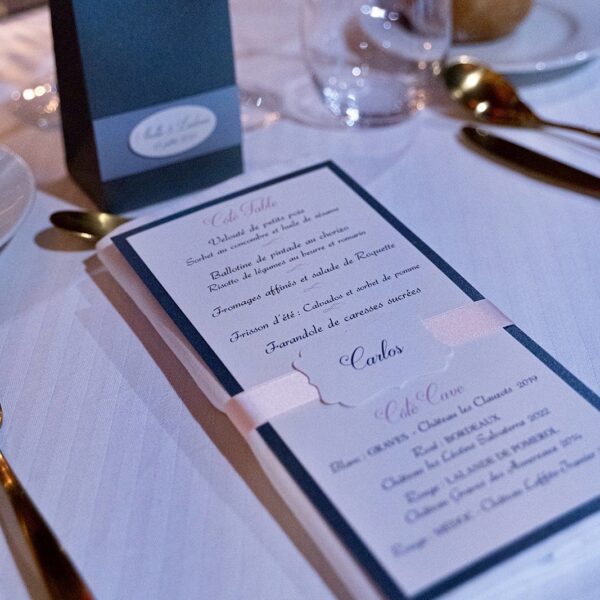 Côté Table
Velouté de petits pois
Sorbet au concombre et huile de sésame
Ballotine de pintade au chorizo
Risotto de légumes au beurre et romarin
Fromages affinés et salade de Roquette
Frisson d'été : Calvados et sorbet de pomme
Farandole de caresses sucrées
Carlos
Côté Cave
Blanc : GRAVES - Château les Clauzots 2019
Rosé : BORDEAUX
Château les Lestine Salvaterra 2022
Rouge : LALANDE DE POMEROL
Château Graves des Annereaux 2014
Rouge : MÉDOC - Château